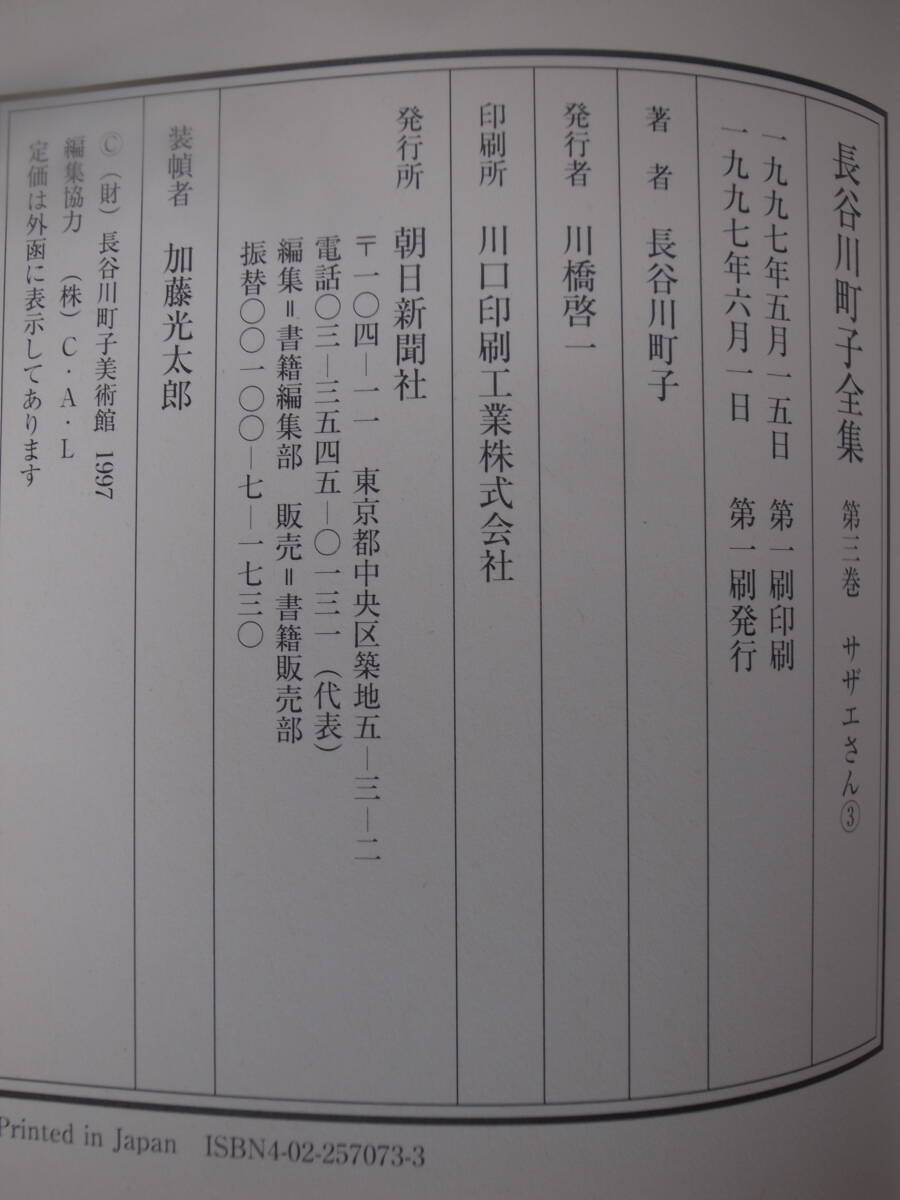 長谷川町子全集 第三巻 サザエさん③
一九九七年五月一五日 第一刷印刷
一九九七年六月一日 第一刷発行
著者 長谷川町子
発行者 川橋啓一
印刷所 川口印刷工業株式会社
発行所 朝日新聞社
〒一〇四—一一 東京都中央区築地五—三—二
電話〇三—三五四五—〇一三一（代表）
編集＝書籍編集部 販売＝書籍販売部
振替〇〇一〇〇—七—一七三〇
装幀者 加藤光太郎
©（財）長谷川町子美術館 1997
編集協力 （株）C・A・L
定価は外函に表示してあります
Printed in Japan ISBN4-02-257073-3